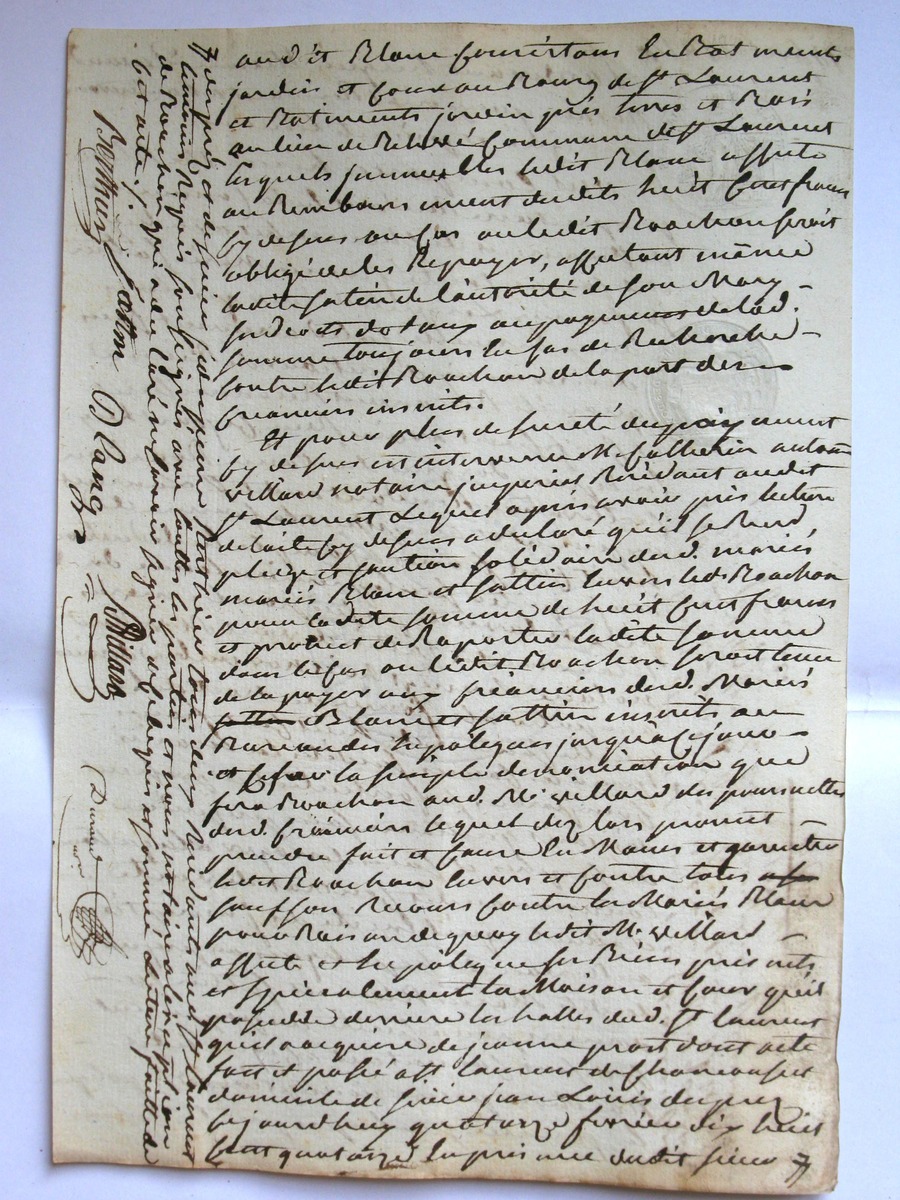 aud.it Blanc consistans En Batiments
jardin et cour au Bourg de st Laurent
et Batiments jardin prés terres et Bois
au lieu de Commune de st Laurent
lesquels immeubles ledit Blanc affecte
au Remboursement dudits huit cent francs
cy dessus au cas ou ledit Roachon seroit
obligé de les Repayer, affectant même
ladite fattin de l'autorité de son Mary
ses droits dotaux au payement de lad.
somme toujours le cas de Recherche
contre ledit Roachon de la part des
creanciers inscrits.
Et pour plus de sureté du payement
cy dessus est intervenu Mr Catherin antoine
villard notaire imperial Residant audit
st Laurent Lequel après avoir pris lecture
de l'acte cy dessus a declaré qu'il se Rend
pleige et caution solidaire dud. mariés
mariés Blanc et fattin envers led. Roachon
pour ladite somme de huit cent francs
et promet de Raporter ladite somme
dans le cas ou ledit Roachon seroit tenu
de la payer aux créanciers dud. Mariés
Blanc et fattin inscrits au
Bureau des hipoteques jusqu'a ce jour
et ce sur la simple denonciation que
fera Roachon aud. Mr villard des poursuittes
dud. créanciers lequel dez lors promet
prendre fait et cause En Mains et garentir
ledit Roachon envers et contre tous
sauf son Recours contre les Mariés Blanc
pour Raison de quoy ledit Mr villard
affecte et hipoteque ses Biens presents
et specialement la Maison et cour qu'il
possede derriere les halles dud. st Laurent
qu'il a acquise de jeanne prost dont acte
fait et passé a st Laurent de
domicile de sieur jean Louis
cejourdhuy quatorze fevrier dix huit
cent quatorze En presence dudit sieur
et de sieur Berthier tous deux Residants aud. st Laurent
temoins Requis soussignés avec toutes les parties et nous notaire a l'exception
de Roachon qui a declaré ne savoir signer de ce requis et sommé Lecture faitte de
cet acte ./.
Berthier fattin Blanc Villard
Durand